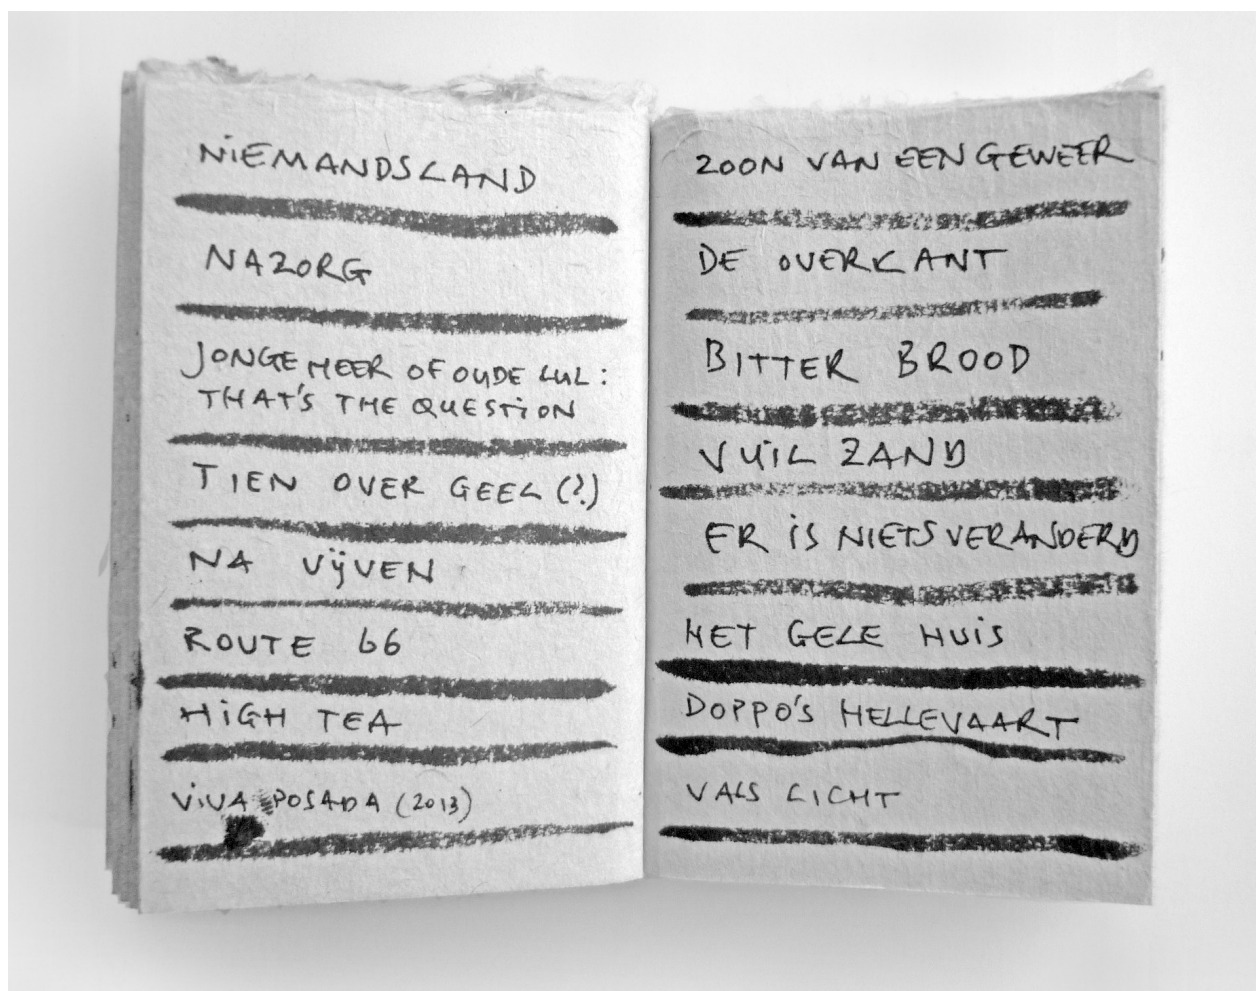 NIEMANDSLAND
NAZORG
JONGE HEER OF OUDE LUL:
THAT'S THE QUESTION
TIEN OVER GEEL (?)
NA VIJVEN
ROUTE 66
HIGH TEA
VIVA POSADA (2013)
ZOON VAN EEN GEWEER
DE OVERKANT
BITTER BROOD
VUIL ZAND
ER IS NIETS VERANDERD
HET GELE HUIS
DOPPO'S HELLEVAART
VALS LICHT